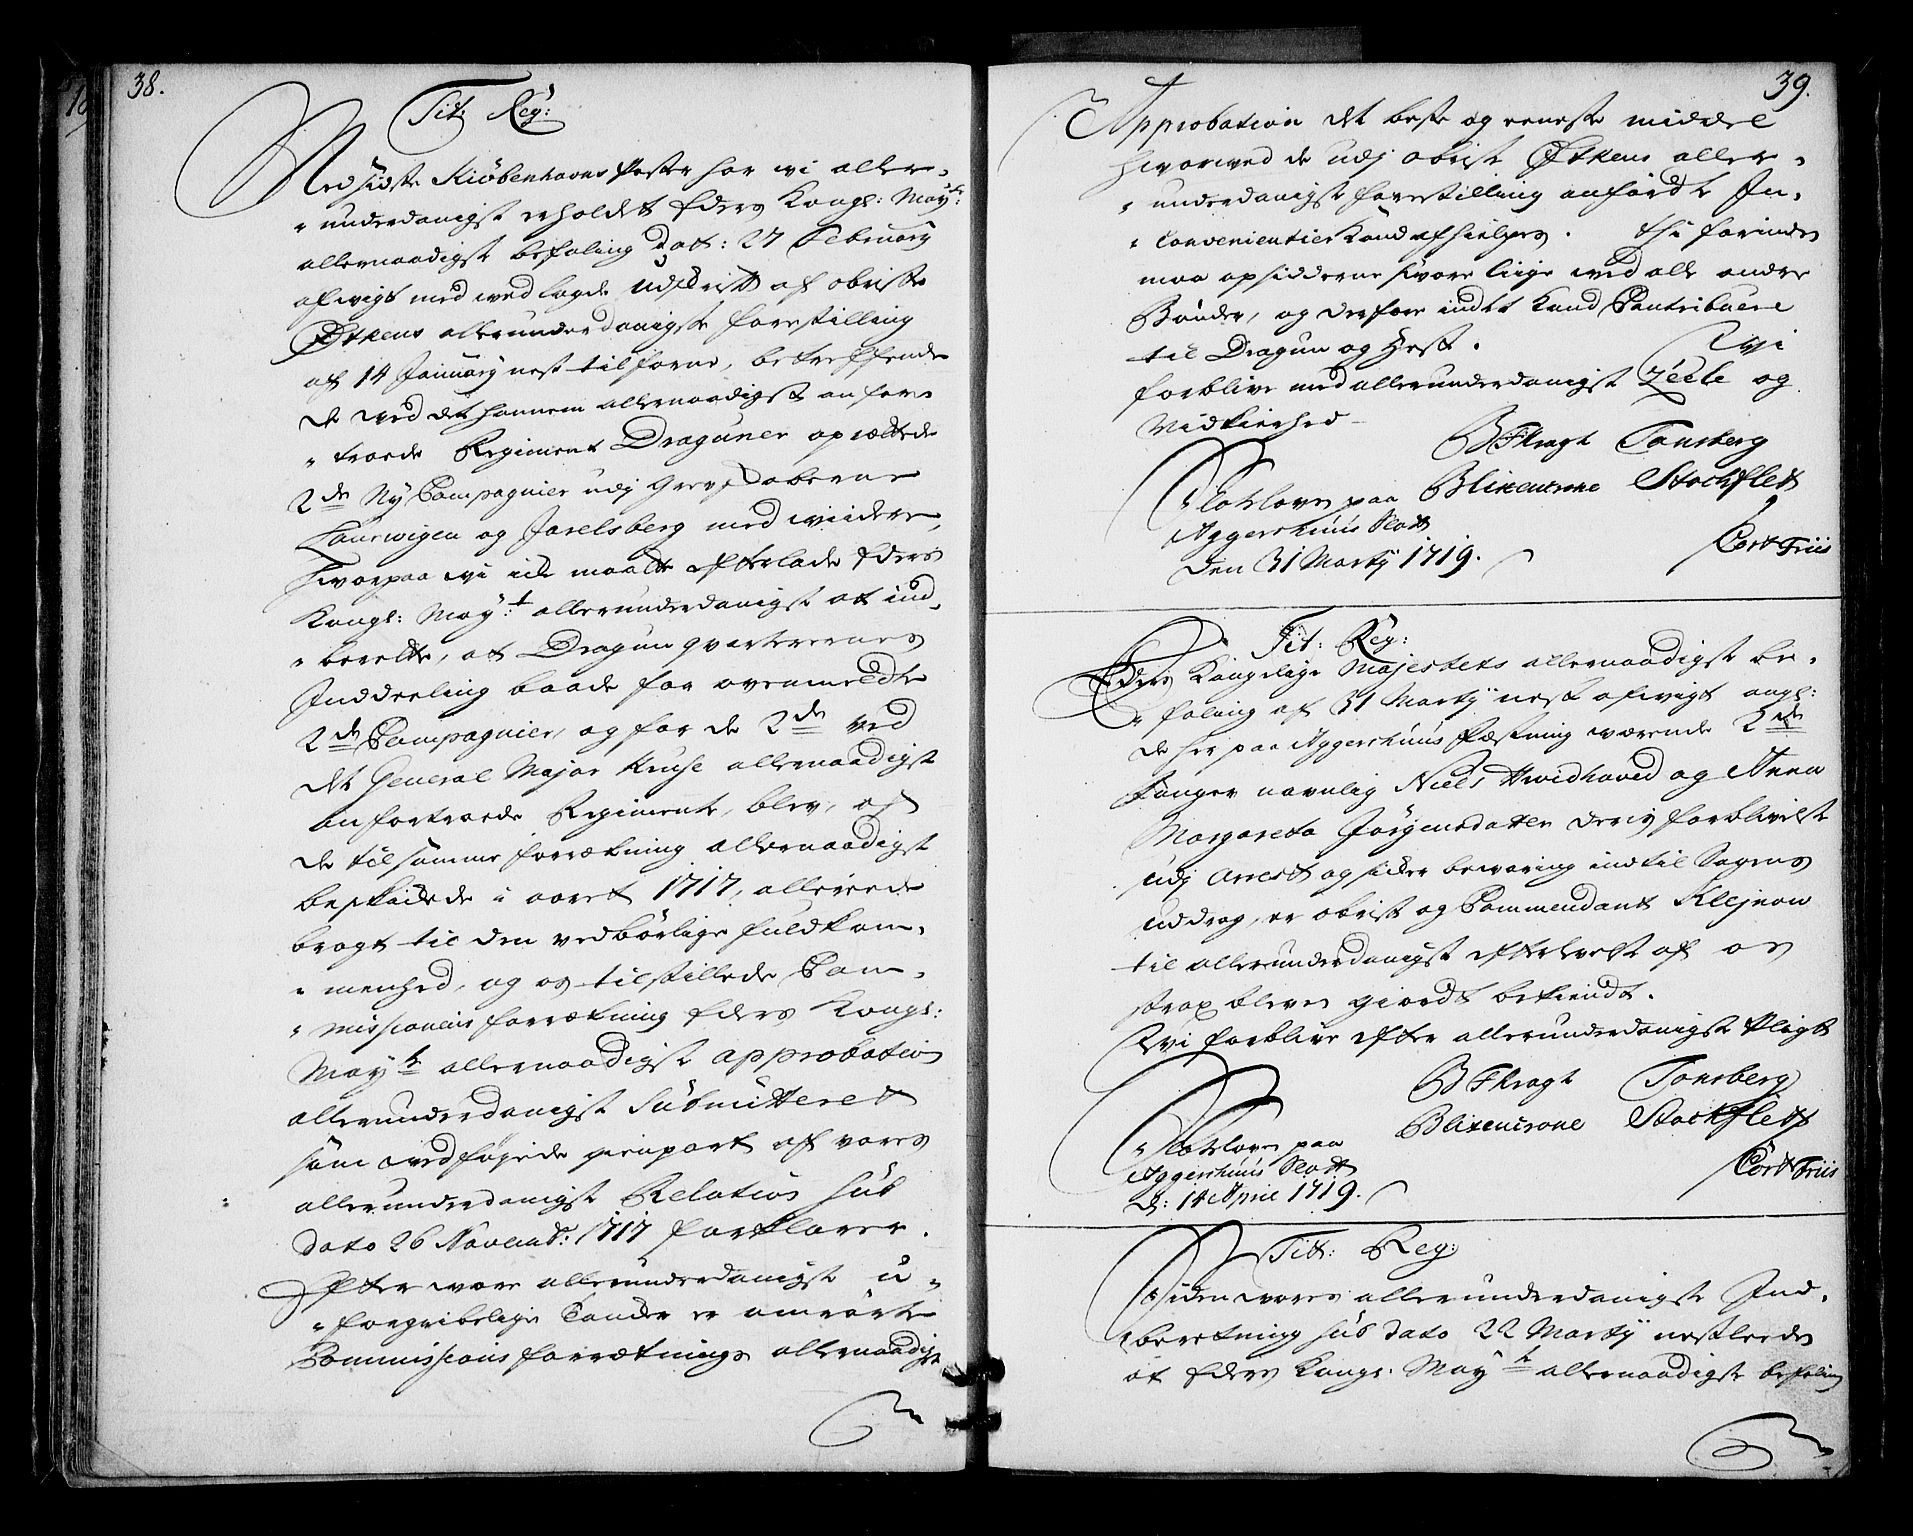 38.
Tit: Reg:
Med sidste Kiöbenhavns Poster har vi aller-
underdanigst erholdet Eders Kongl: May:ts
allernaadigst befaling Dat: 27 February
afwigt med wed lagde udskrift af obriste
Øtkens allerunderdanigste forestilling
af 14 January nest tilforne, betreffende
de wed det hannem allernaadigst anfor-
troede Regiment Dragüner oprættede
2de Ny Compagnier udj Grevskaberne
Laurwigen og Jarelsberg med wiidere,
hvorpaa wi iche maatte efterlade Eders
Kongl: May:t allerunderdanigst at ind-
berette, at Dragun qvarterernes
Inddeeling baade for ovenmeldte
2de Compagnier, og for de 2de ved
det General Major Kruse allernaadigst
anfortroede Regimente, blev, af
de til samme forretning allernaadigst
beskickede i aaret 1717, allereede
bragt til den vedbörlige fuldkom-
menhed, og os tilstillede Com-
missionens forretning Eders Kongl:
May:ts allernaadigst approbation
allerunderdanigst Submitteret
som wedföyede gienpart af vores
allerunderdanigst Relation sub
dato 26 Novemb: 1717 forklarer.
Efter wore allerunderdanigst u-
forgribelige Tancker er omrörte
Commissions forretnings allernaadigste
39.
Approbation det beste og eeneste middel
hvorved de udj obrist Øtkens aller-
underdanigst forestilling anfördte In-
convenientier kand afhielpes. thi forinden
maa opsidderne svare liige wed alle andre
Bönder, og derfore indtet kand Contribuere
til Dragun og Hest. Wi
forblive med allerunderdanigst Zeele og
Vidkierhed
B F Kragh Tonsberg
Slotslowen paa Blixencrone Stochflett
Aggershuus Slott
Den 31 Marty 1719. Cort Friis
Tit: Reg:
Eders Kongelige Majestets allernaadigst be-
faling af 31 Marty nest afwigt angl:
de her paa Aggershuus Fæstning wærende 2de
Fanger navnlig Niels Hvidhoved og Anna
Margareta Jörgensdatter deris forblivelse
udj Arrest og sicker bewaring indtil Sagens
uddrag, er obrist og Commendant Klejnow
til allerunderdanigst efterlevelse af os
strax bleven giordt bekiendt.
Wi forblive efter allerunderdanigst Pligt
B F Kragh Tonsberg
Blixencrone Stockflett
Slotslowen paa
Aggershuus Slott Cort Friis
d: 14 April 1719.
Titt: Reg:
Siden wores allerunderdanigste Ind-
beretning sub dato 22 Marty nestleeden
at Eders Kongl: May:ts allernaadigste befaling